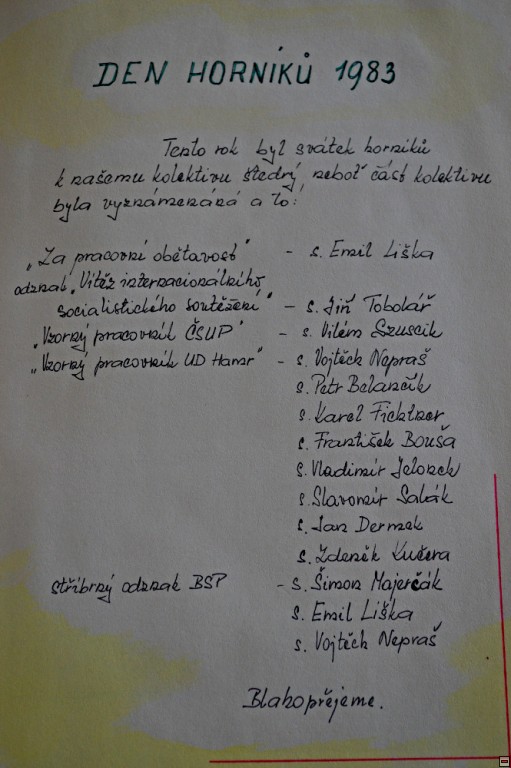 DEN HORNÍKŮ 1983
Tento rok byl svátek horníků
k našemu kolektivu štědrý, neboť část kolektivu
byla vyznamenána a to:
„Za pracovní obětavost" - s. Emil Liška
odznak „Vítěz internacionálního
socialistického soutěžení" - s. Jiří Tobolář
„Vzorný pracovník ČSUP" - s. Vilém Szuscik
„Vzorný pracovník UD Hamr" - s. Vojtěch Nepraš
s. Petr Belančík
s. Karel Fichtner
s. František Bouša
s. Vladimír Jelonek
s. Slavomír Salák
s. Jan Dermek
s. Zdeněk Kučera
stříbrný odznak BSP - s. Šimon Majerčák
s. Emil Liška
s. Vojtěch Nepraš
Blahopřejeme.